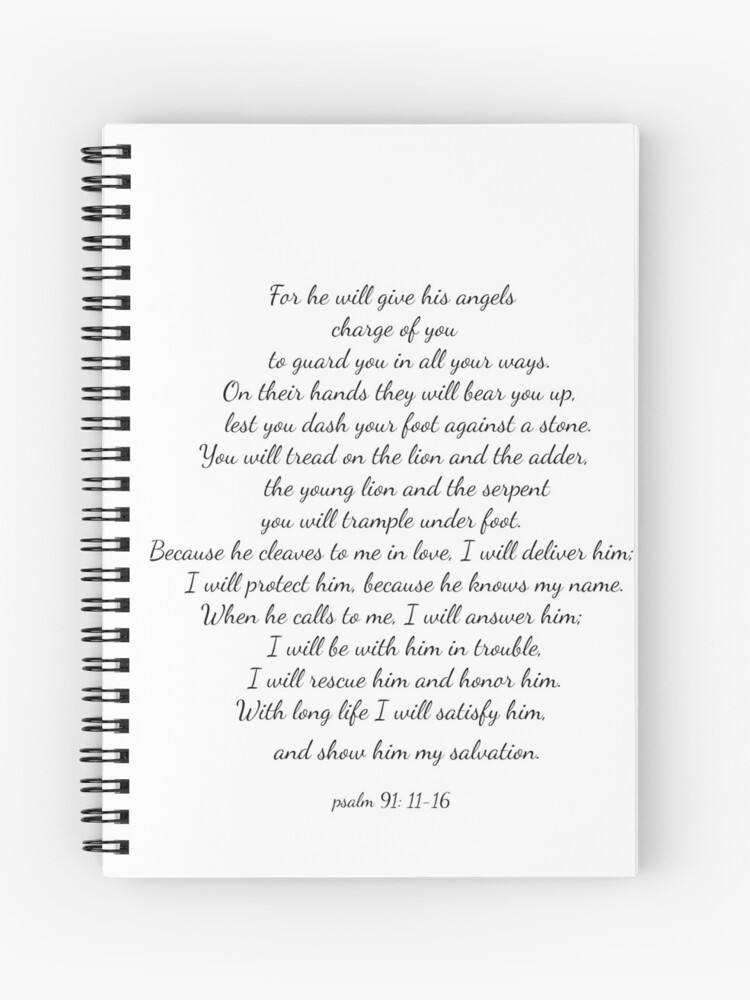 For he will give his angels
charge of you
to guard you in all your ways.
On their hands they will bear you up,
lest you dash your foot against a stone.
You will tread on the lion and the adder,
the young lion and the serpent
you will trample under foot.
Because he cleaves to me in love, I will deliver him;
I will protect him, because he knows my name.
When he calls to me, I will answer him;
I will be with him in trouble,
I will rescue him and honor him.
With long life I will satisfy him,
and show him my salvation.
psalm 91: 11-16